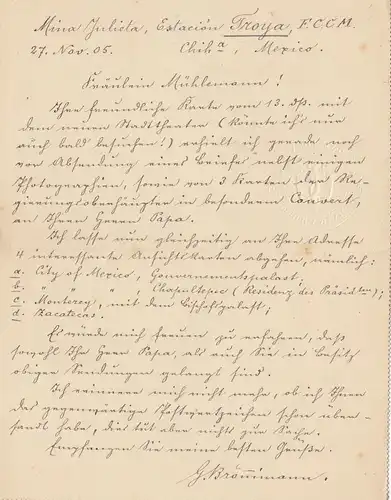 Mina Julieta, Estación Troya, F.C.C.M.
27. Nov. 05. Chih.a, Mexico.
Fräulein Mühlemann!
Ihre freundliche Karte vom 13. ds. mit
dem neuen Stadttheater (könnte ich's nur
auch bald besuchen!) erhielt ich gerade noch
vor Absendung eines Briefes nebst einigen
Photographien, sowie von 3 Karten der Re-
gierungsoberhäupter in besonderem Couvert,
an Ihren Herrn Papa.
Ich lasse nun gleichzeitig an Ihre Adresse
4 interessante Ansichtskarten abgehen, nämlich:
a. City of Mexico, Gouvernementspalast;
b. " " " , Chapultepec (Residenz des Präsidenten);
c. Monterey, mit dem Bischofspalast;
d. Zacatecas.
Es würde mich freuen zu erfahren, daß
sowohl Ihr Herr Papa, als auch Sie in Besitz
obiger Sendungen gelangt sind.
Ich erinnere mich nicht mehr, ob ich Ihnen
das gegenwärtige Postwertzeichen schon über-
sandt habe, dies tut aber nicht zur Sache.
Empfangen Sie meine besten Grüße.
G. Brönnimann.